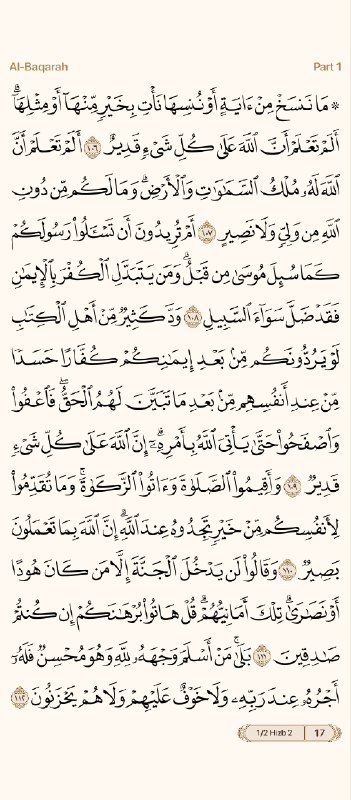 Al-Baqarah Part 1
۞ مَا نَنسَخْ مِنْ ءَايَةٍ أَوْ نُنسِهَا نَأْتِ بِخَيْرٍ مِّنْهَآ أَوْ مِثْلِهَآ ۗ
أَلَمْ تَعْلَمْ أَنَّ ٱللَّهَ عَلَىٰ كُلِّ شَىْءٍ قَدِيرٌ ١٠٦ أَلَمْ تَعْلَمْ أَنَّ
ٱللَّهَ لَهُۥ مُلْكُ ٱلسَّمَٰوَٰتِ وَٱلْأَرْضِ ۗ وَمَا لَكُم مِّن دُونِ
ٱللَّهِ مِن وَلِىٍّ وَلَا نَصِيرٍ ١٠٧ أَمْ تُرِيدُونَ أَن تَسْـَٔلُوا۟ رَسُولَكُمْ
كَمَا سُئِلَ مُوسَىٰ مِن قَبْلُ ۗ وَمَن يَتَبَدَّلِ ٱلْكُفْرَ بِٱلْإِيمَٰنِ
فَقَدْ ضَلَّ سَوَآءَ ٱلسَّبِيلِ ١٠٨ وَدَّ كَثِيرٌ مِّنْ أَهْلِ ٱلْكِتَٰبِ
لَوْ يَرُدُّونَكُم مِّنۢ بَعْدِ إِيمَٰنِكُمْ كُفَّارًا حَسَدًا
مِّنْ عِندِ أَنفُسِهِم مِّنۢ بَعْدِ مَا تَبَيَّنَ لَهُمُ ٱلْحَقُّ ۖ فَٱعْفُوا۟
وَٱصْفَحُوا۟ حَتَّىٰ يَأْتِىَ ٱللَّهُ بِأَمْرِهِۦٓ ۗ إِنَّ ٱللَّهَ عَلَىٰ كُلِّ شَىْءٍ
قَدِيرٌ ١٠٩ وَأَقِيمُوا۟ ٱلصَّلَوٰةَ وَءَاتُوا۟ ٱلزَّكَوٰةَ ۚ وَمَا تُقَدِّمُوا۟
لِأَنفُسِكُم مِّنْ خَيْرٍ تَجِدُوهُ عِندَ ٱللَّهِ ۗ إِنَّ ٱللَّهَ بِمَا تَعْمَلُونَ
بَصِيرٌ ١١٠ وَقَالُوا۟ لَن يَدْخُلَ ٱلْجَنَّةَ إِلَّا مَن كَانَ هُودًا
أَوْ نَصَٰرَىٰ ۗ تِلْكَ أَمَانِيُّهُمْ ۗ قُلْ هَاتُوا۟ بُرْهَٰنَكُمْ إِن كُنتُمْ
صَٰدِقِينَ ١١١ بَلَىٰ مَنْ أَسْلَمَ وَجْهَهُۥ لِلَّهِ وَهُوَ مُحْسِنٌ فَلَهُۥٓ
أَجْرُهُۥ عِندَ رَبِّهِۦ وَلَا خَوْفٌ عَلَيْهِمْ وَلَا هُمْ يَحْزَنُونَ ١١٢
1/2 Hizb 2 17